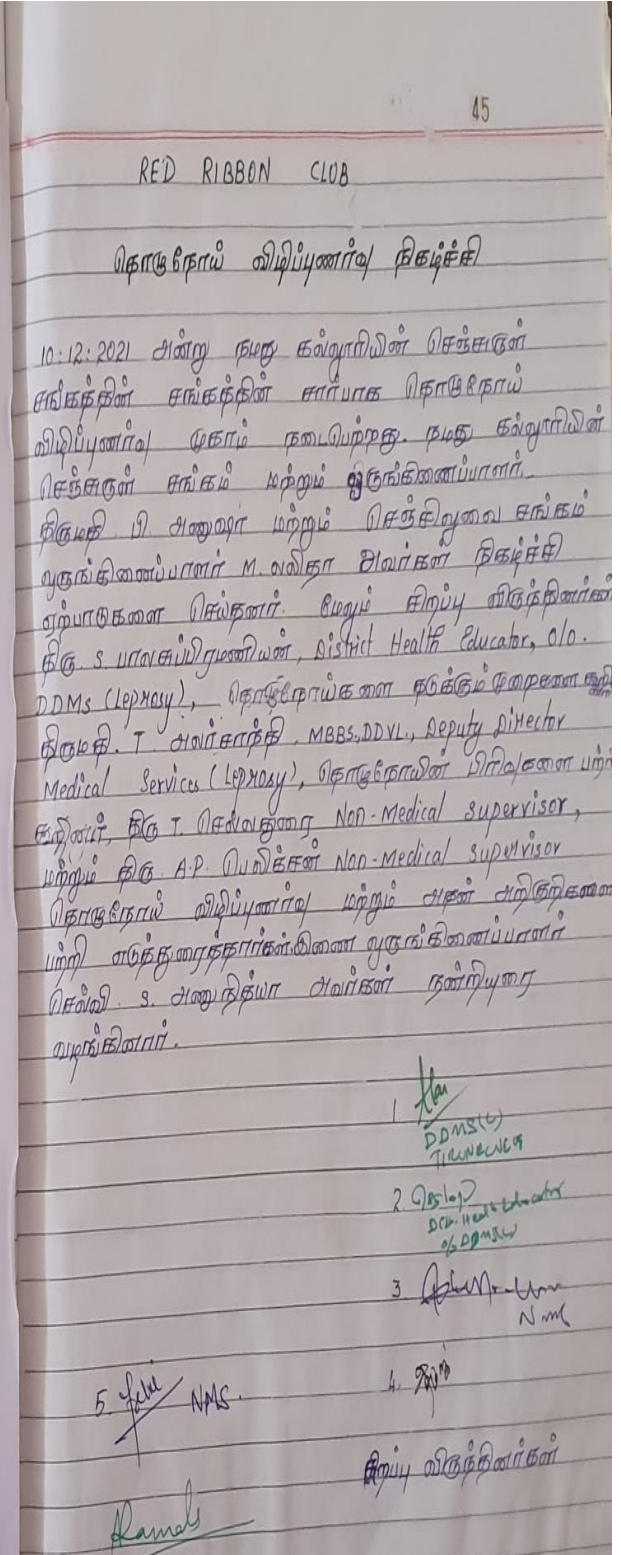 45
RED RIBBON CLUB
தொழுநோய் விழிப்புணர்வு நிகழ்ச்சி
10:12:2021 அன்று நமது கல்லூரியின் செஞ்சுருள்
சங்கத்தின் சங்கத்தின் சார்பாக தொழுநோய்
விழிப்புணர்வு முகாம் நடைபெற்றது. நமது கல்லூரியின்
செஞ்சுருள் சங்கம் மற்றும் ஒருங்கிணைப்பாளர்
திருமதி. பி. அனுஷா மற்றும் செஞ்சிலுவை சங்கம்
ஒருங்கிணைப்பாளர் M. லலிதா அவர்கள் நிகழ்ச்சி
ஏற்பாடுகளை செய்தனர். மேலும் சிறப்பு விருந்தினர்கள்
திரு. S. பாலசுப்பிரமணியன், District Health Educator, O/o.
DDMS (Leprosy), தொழுநோய்களை தடுக்கும் முறைகளை
திருமதி. T. அலர்சாந்தி, MBBS,DDVL., Deputy Director
Medical Services (Leprosy), தொழுநோயின் பிரிவுகளை பற்றி
கூறினார், திரு T. செல்வதுரை Non-Medical supervisor,
மற்றும் திரு. A.P. பெலிக்சன் Non-Medical supervisor
தொழுநோய் விழிப்புணர்வு மற்றும் அதன் அறிகுறிகளை
பற்றி எடுத்துரைத்தார்கள். இணை ஒருங்கிணைப்பாளர்
செல்வி. S. அனுநித்யா அவர்கள் நன்றியுரை
வழங்கினார்.
1
DDMS(L)
TIRUNELVELI
2.
Dist. Health Educator
O/o DDMS(L)
3.
NMS
4.
5. NMS.
சிறப்பு விருந்தினர்கள்
Kamals